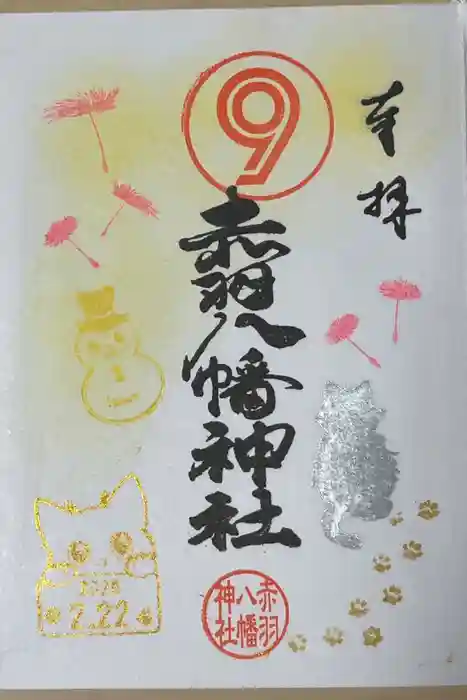 奉拝
⑨
赤羽八幡神社
赤羽
八幡
神社
2026
2.22